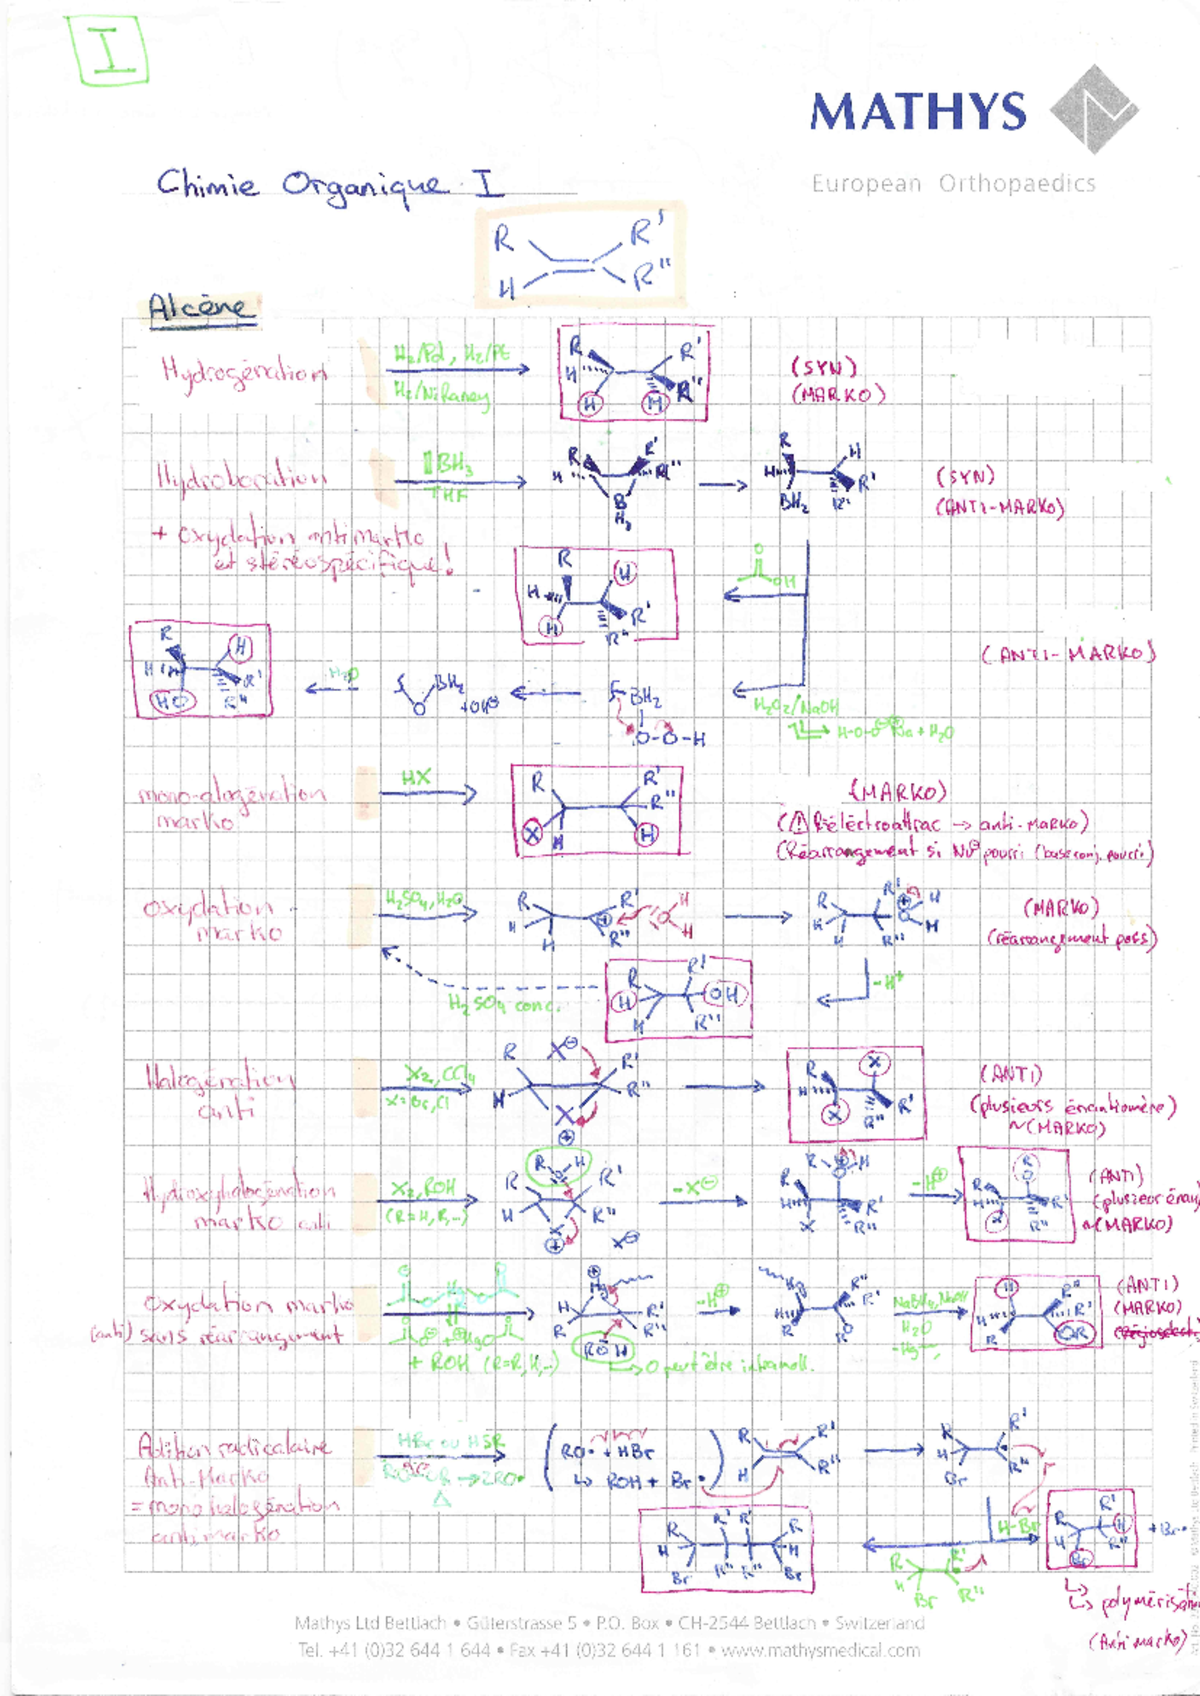 I
MATHYS
European Orthopaedics
Chimie Organique I
R R'
H R"
Alcène
Hydrogénation H2/Pd, H2/Pt (SYN)
H2/Ni Raney (MARKO)
Hydroboration BH3 (SYN)
THF (ANTI-MARKO)
+ oxydation antimarko
et stéréospécifique!
(ANTI-MARKO)
H2O BH2 +OH⊖ BH2 H2O2/NaOH
O-O-H H-O-O⊖ ⊕Na + H2O
mono-alogénation HX (MARKO)
marko (⚠ R électroattrac → anti-MARKO)
(Réarrangement si Nu⊖ pourri (base conj. pourri)
oxydation H2SO4, H2O (MARKO)
marko (réarrangement poss)
-H+
H2SO4 conc.
Halogénation X2, CCl4 (ANTI)
anti X=Br, Cl (plusieurs énantiomère)
~(MARKO)
Hydroxyhalogénation X2, ROH -X⊖ -H⊕ (ANTI)
marko anti (R=H, R,..) (plusieur énan)
~(MARKO)
Oxydation marko -H⊕ NaBH4, NaOH (ANTI)
(anti) sans réarrangement H2O (MARKO)
+ ROH (R=R,H,..) ↳ O peut être intramoll.
Adition radicalaire HBr ou HSR (RO• + HBr
Anti-Marko → 2RO• ↳ ROH + Br•)
= mono halogénation Δ
anti marko H-Br + Br•
↳ polymérisation
(Anti marko)
Mathys Ltd Bettlach • Güterstrasse 5 • P.O. Box • CH-2544 Bettlach • Switzerland
Tel. +41 (0)32 644 1 644 • Fax +41 (0)32 644 1 161 • www.mathysmedical.com